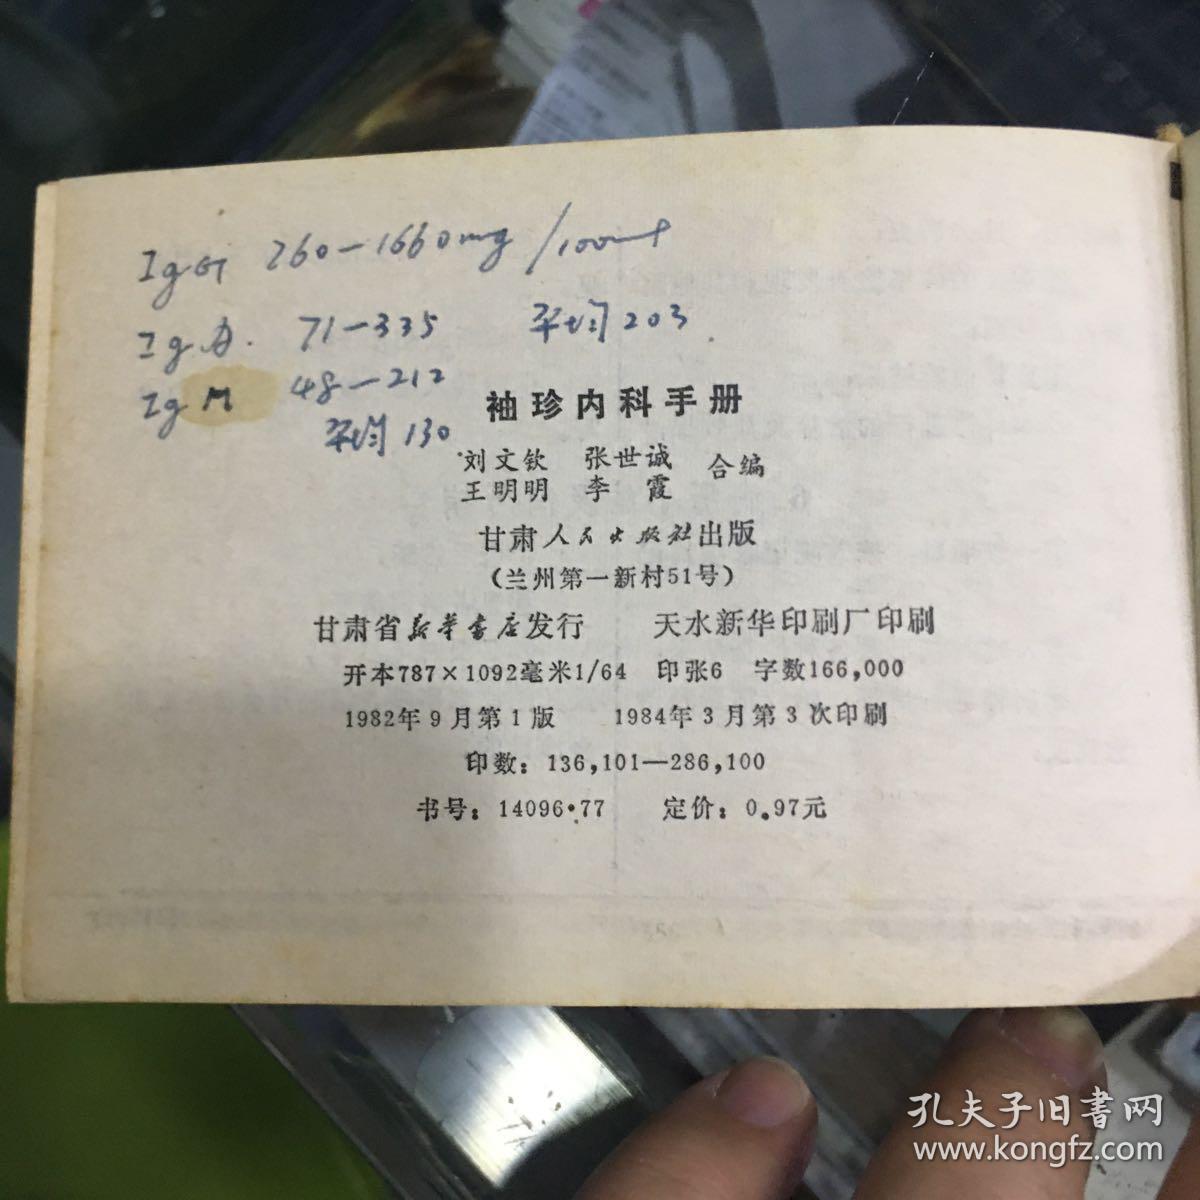 IgG 760—1660mg/100ml
IgA. 71—335 平均203
IgM 48—212
平均130
袖珍内科手册
刘文钦 张世诚
王明明 李霞 合编
甘肃人民出版社出版
(兰州第一新村51号)
甘肃省新华书店发行 天水新华印刷厂印刷
开本787×1092毫米1/64 印张6 字数166,000
1982年9月第1版 1984年3月第3次印刷
印数：136,101—286,100
书号：14096·77 定价：0.97元
孔夫子旧书网
www.kongfz.com